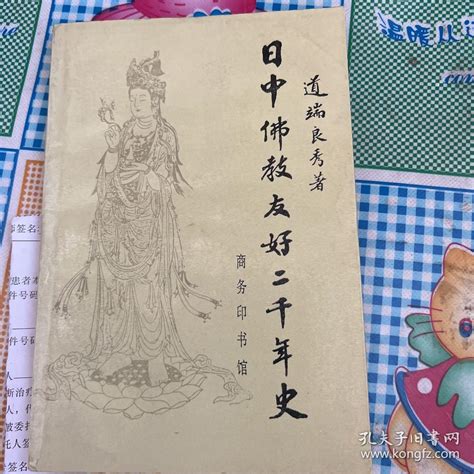 日中佛教友好二千年史
道端良秀著
商务印书馆
温暖
签名
患者本
件号码
件号码
人
断治疗
人，
被委托
托人签
孔夫子旧书网
www.kongfz.com